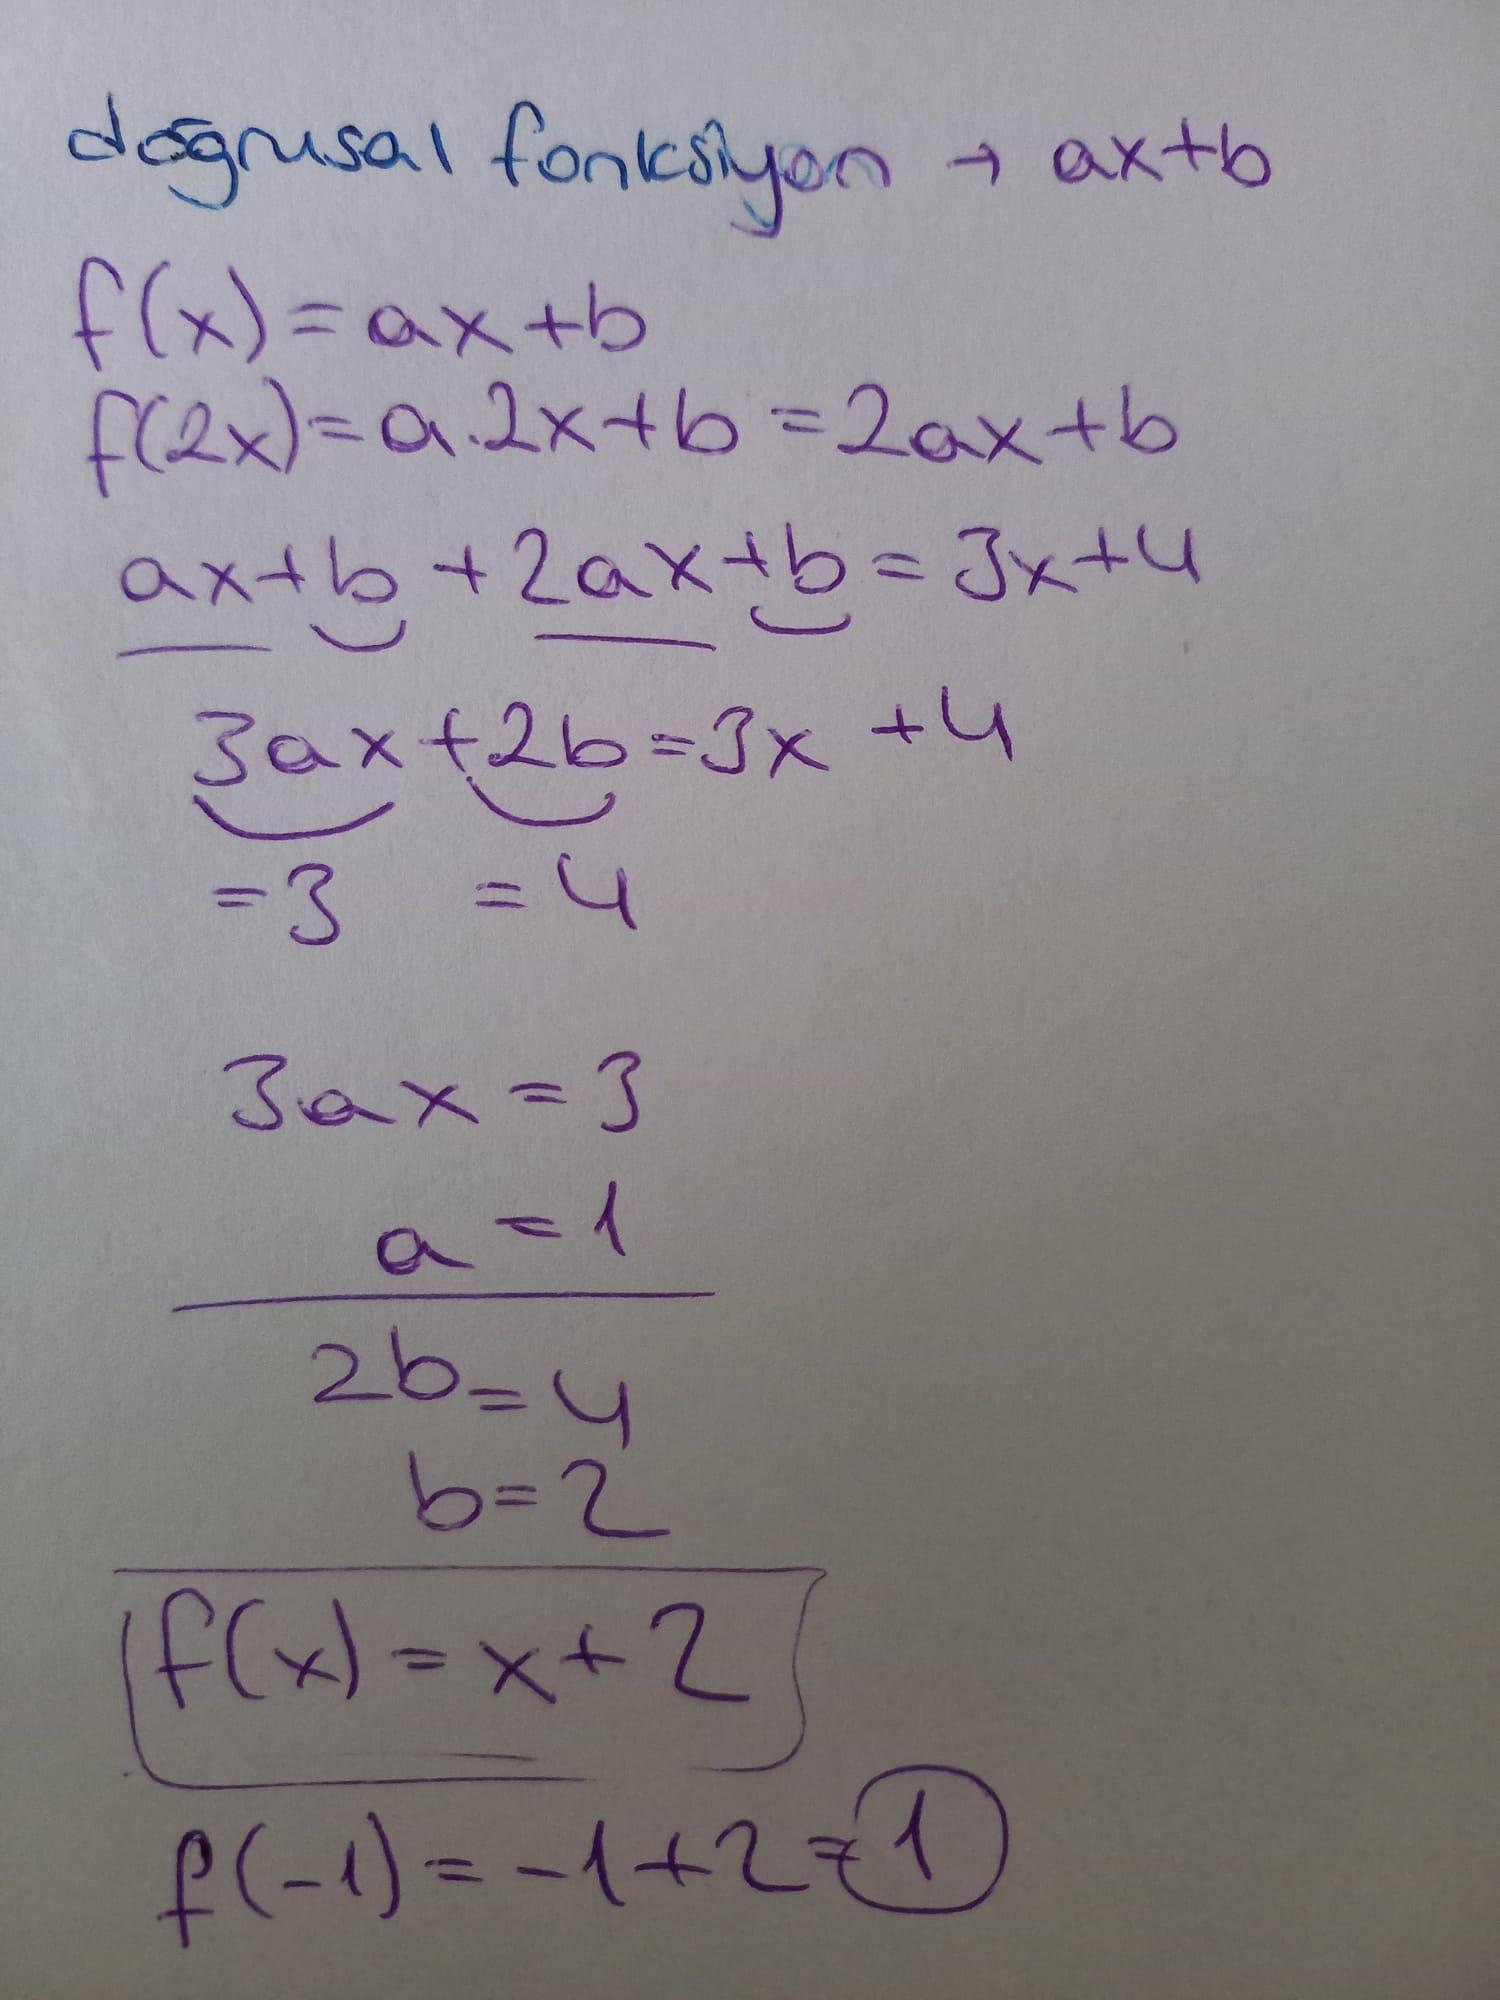 doğrusal fonksiyon → ax+b
f(x)=ax+b
f(2x)=a.2x+b=2ax+b
ax+b+2ax+b=3x+4
3ax+2b=3x+4
=3 =4
3ax=3
a=1
2b=4
b=2
f(x)=x+2
f(-1)=-1+2=1